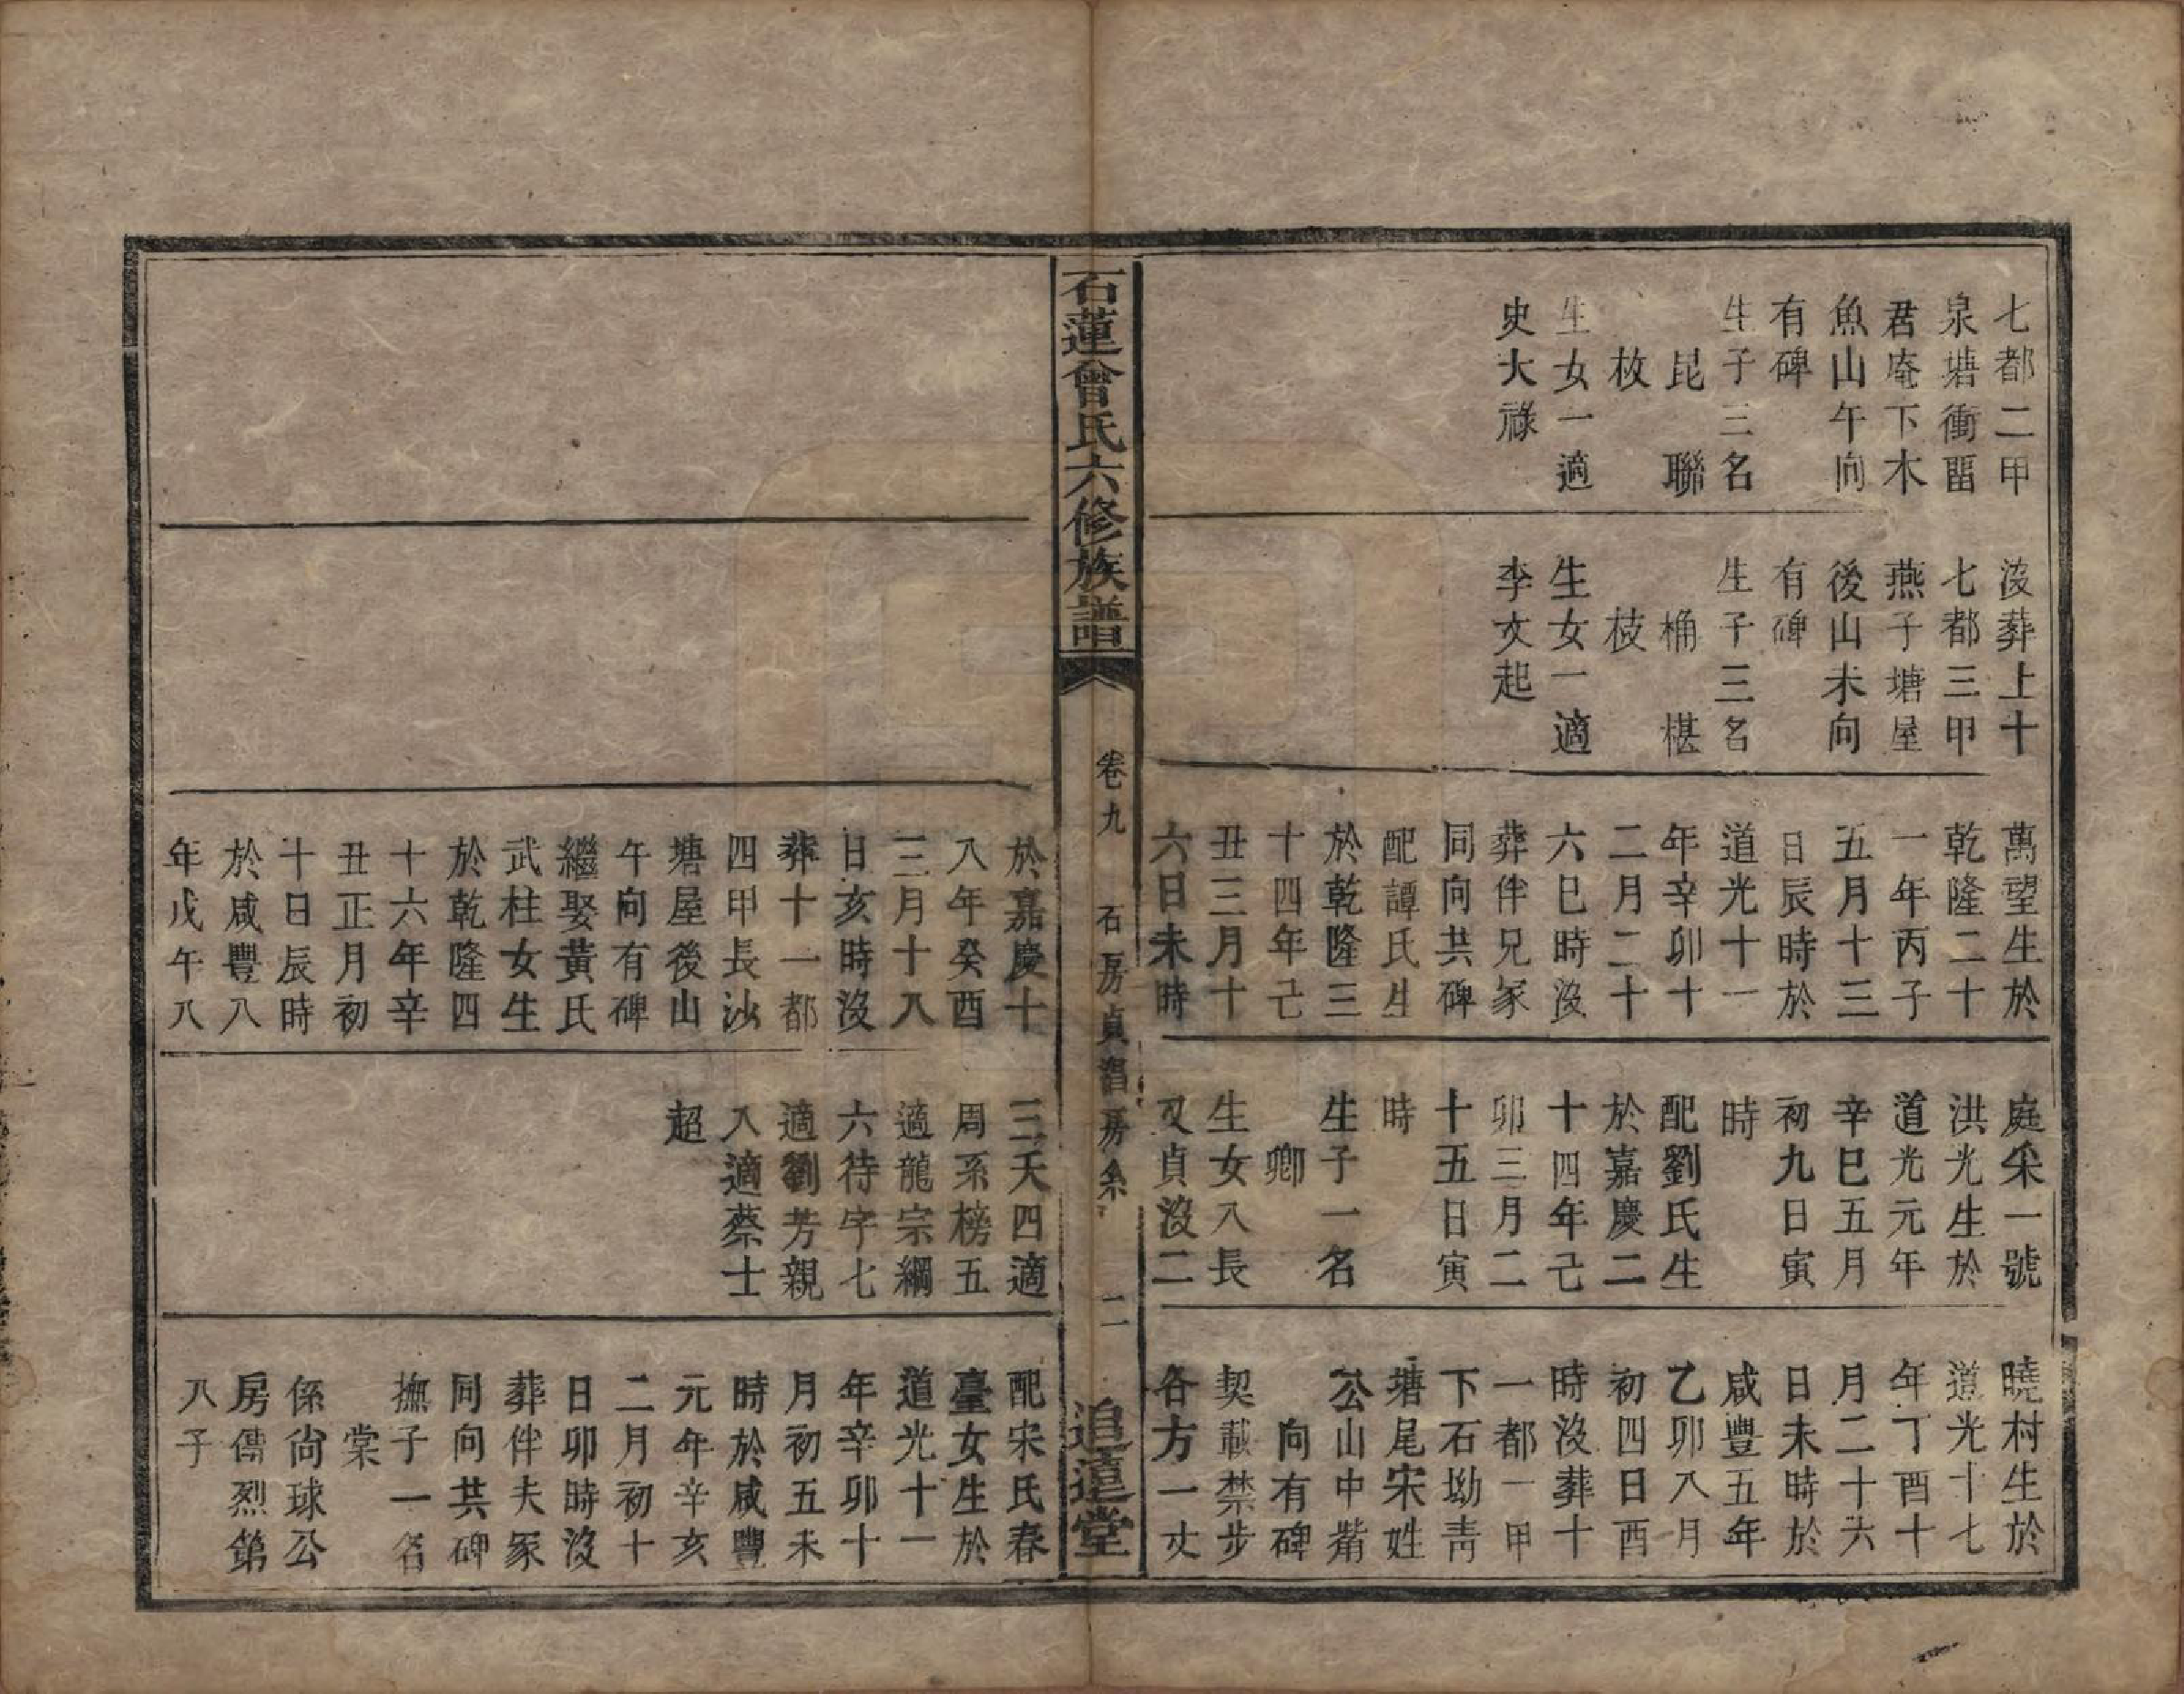 七都二甲
泉塘衝畱
君庵下木
魚山午向
有碑
生子三名
昆 聯
枚
生女一適
史大祿
沒葬上十
七都三甲
燕子塘屋
後山未向
有碑
生子三名
桷 椹
枝
生女一適
李文起
萬望生於
乾隆二十
一年丙子
五月十三
日辰時於
道光十一
年辛卯十
二月二十
六巳時沒
葬伴兄冢
同向共碑
配譚氏生
於乾隆三
十四年己
丑三月十
六日未時
庭采一號
洪光生於
道光元年
辛巳五月
初九日寅
時
配劉氏生
於嘉慶二
十四年己
卯三月二
十五日寅
時
生子一名
卿
生女八長
又貞沒二
曉村生於
道光十七
年丁酉十
月二十六
日未時於
咸豐五年
乙卯八月
初四日酉
時沒葬十
一都一甲
下石坳靑
塘尾宋姓
公山中嘴
向有碑
契載禁步
各方一丈
石蓮曾氏六修族譜
卷九
石房貞習房糸
二
追遠堂
於嘉慶十
八年癸酉
三月十八
日亥時沒
葬十一都
四甲長沙
塘屋後山
午向有碑
繼娶黃氏
武柱女生
於乾隆四
十六年辛
丑正月初
十日辰時
於咸豐八
年戊午八
三天四適
周系榜五
適龍宗綱
六待字七
適劉芳親
八適蔡士
超
配宋氏春
臺女生於
道光十一
年辛卯十
月初五未
時於咸豐
元年辛亥
二月初十
日卯時沒
葬伴夫冢
同向共碑
撫子一名
棠
係尙球公
房傳烈第
八子